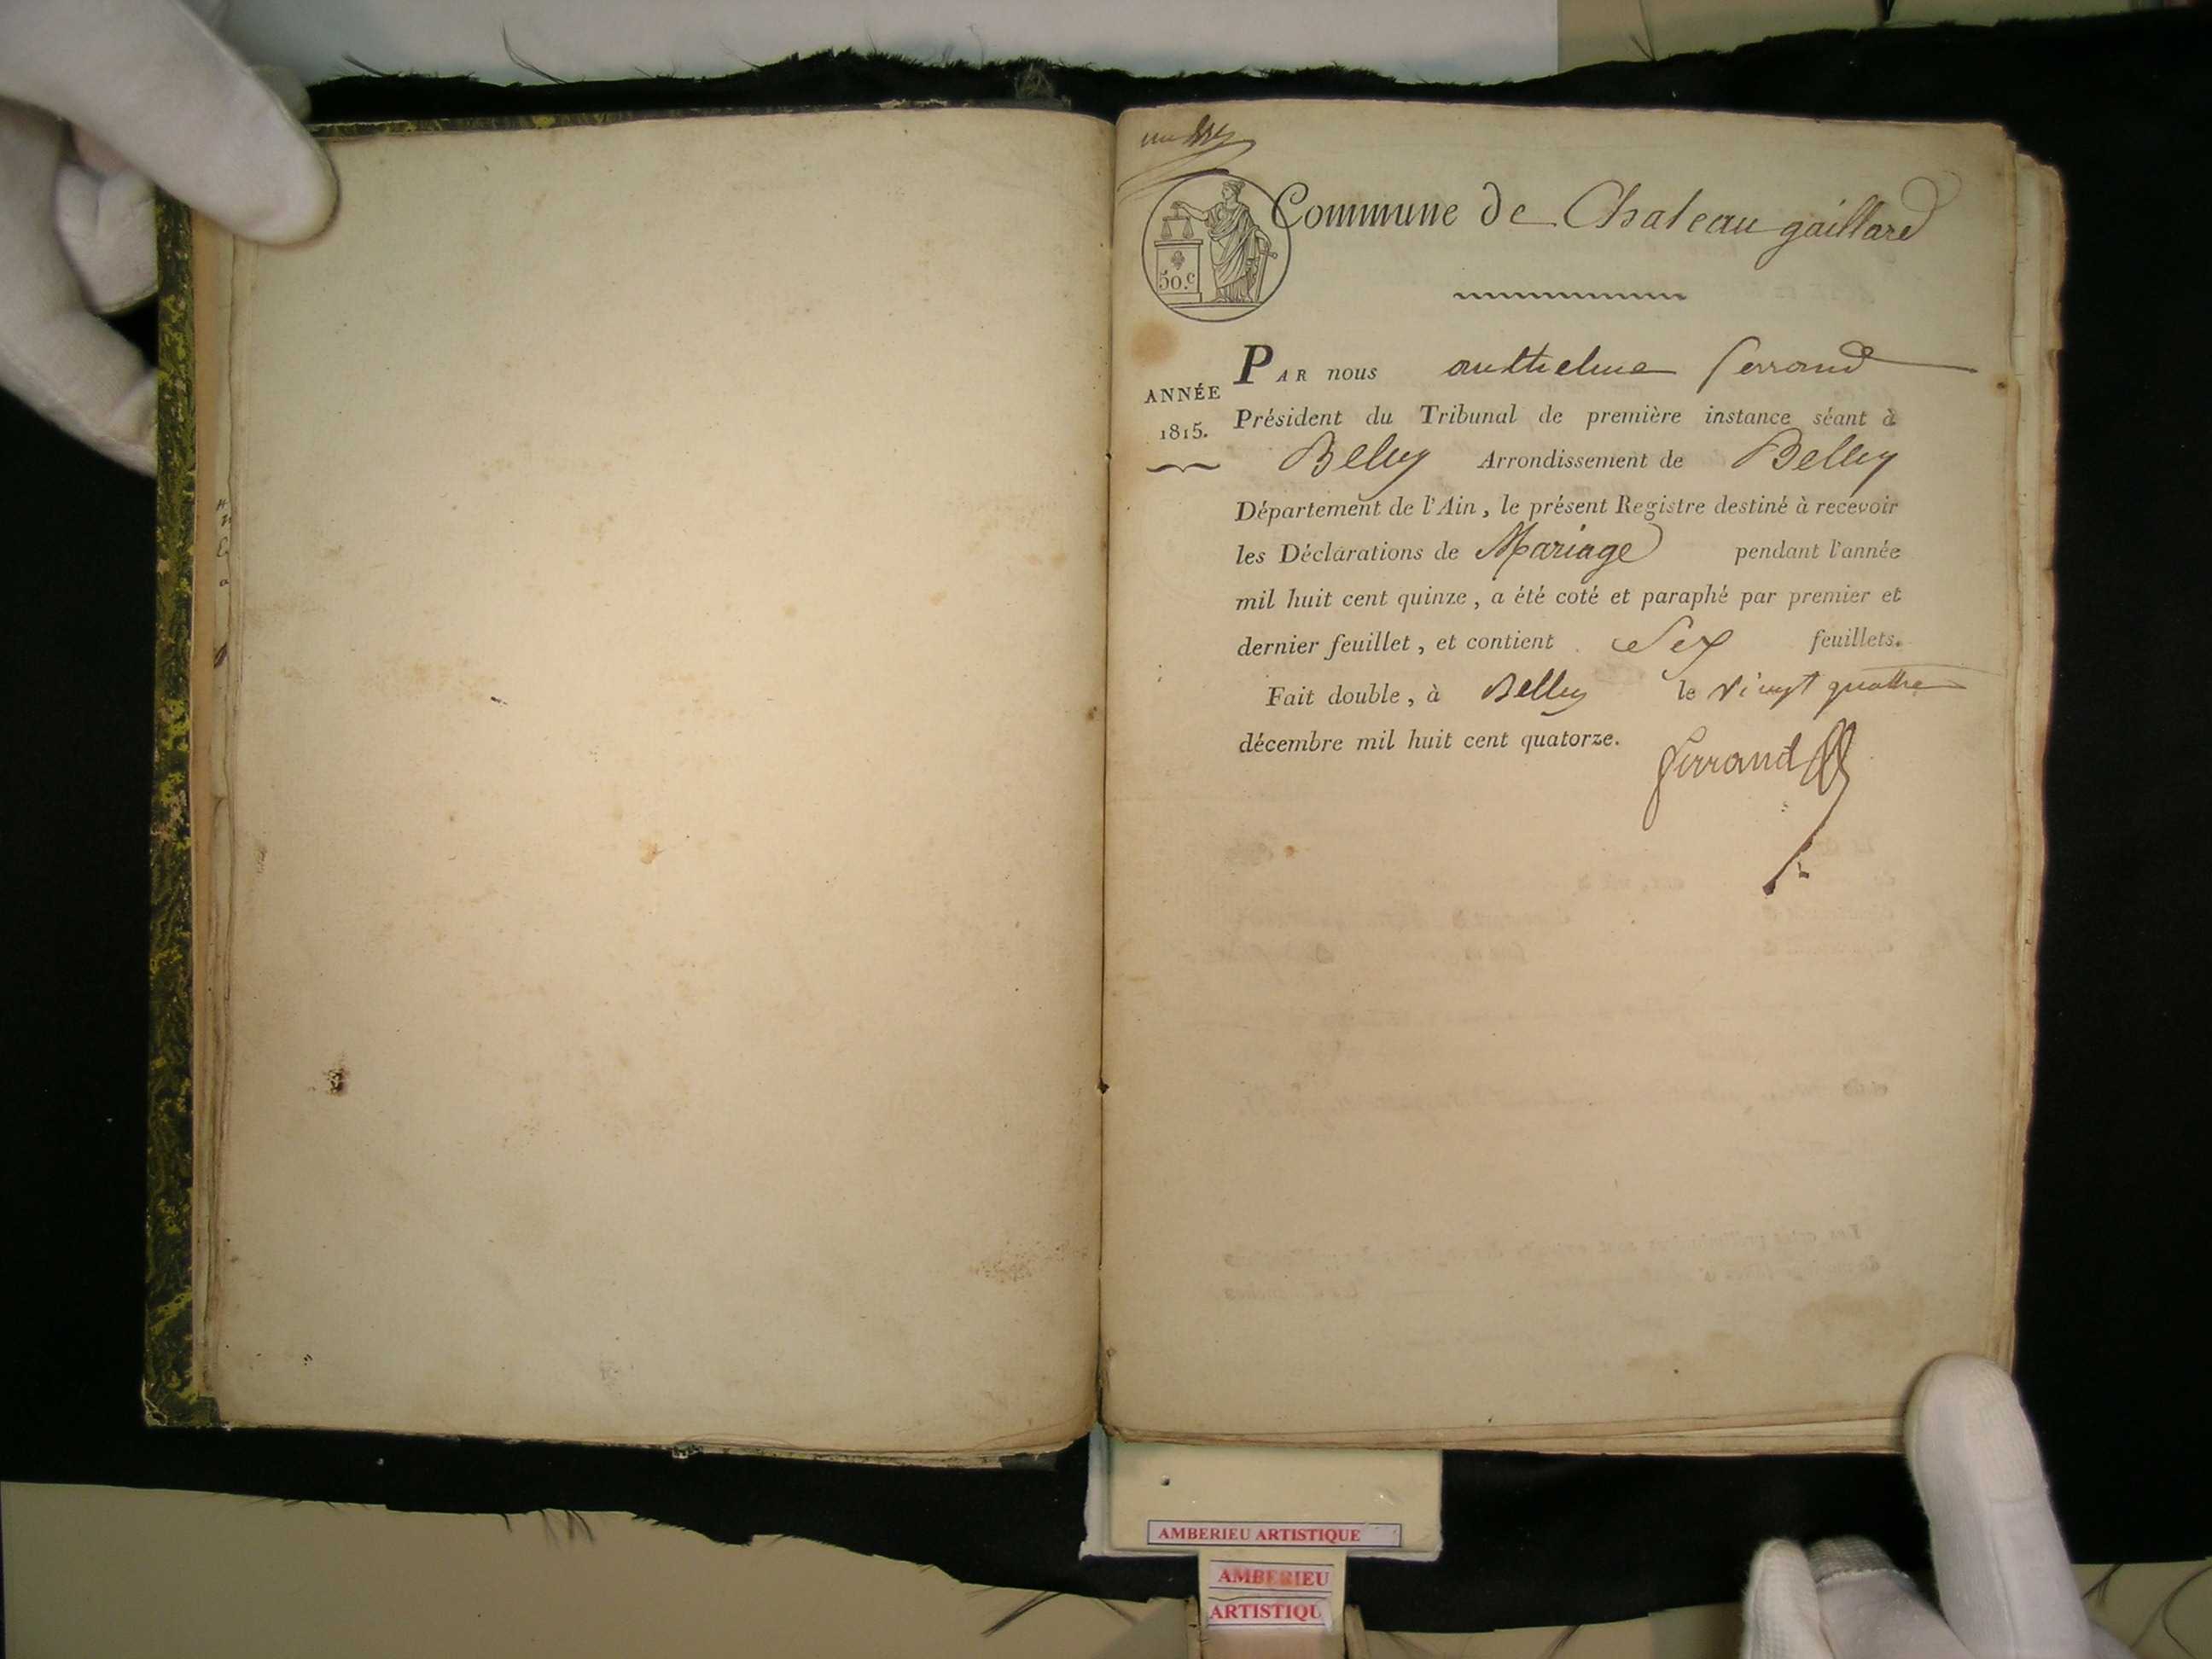 Commune de Chateaugaillard
50.c
ANNÉE
1815.
PAR nous anthelme ferrand
Président du Tribunal de première instance séant à
Belley Arrondissement de Belley
Département de l'Ain, le présent Registre destiné à recevoir
les Déclarations de Mariage pendant l'année
mil huit cent quinze, a été coté et paraphé par premier et
dernier feuillet, et contient Six feuillets.
Fait double, à Belley le vingt quatre
décembre mil huit cent quatorze.
ferrand
AMBERIEU ARTISTIQUE
AMBERIEU
ARTISTIQU